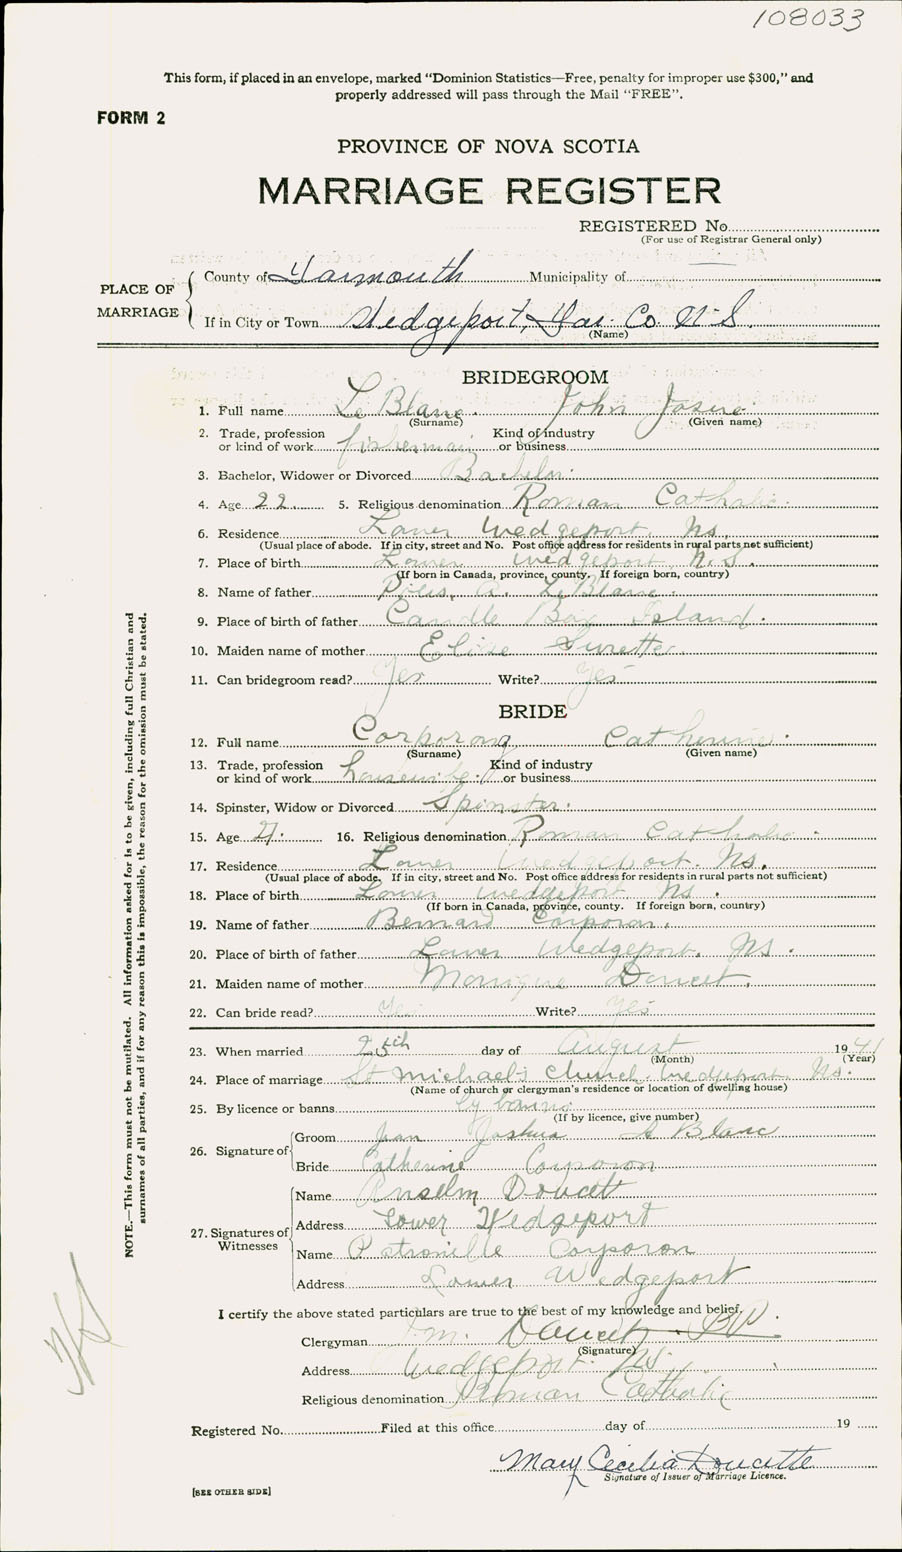 108033
This form, if placed in an envelope, marked "Dominion Statistics—Free, penalty for improper use $300," and
properly addressed will pass through the Mail "FREE".
FORM 2
PROVINCE OF NOVA SCOTIA
MARRIAGE REGISTER
REGISTERED No.
(For use of Registrar General only)
PLACE OF MARRIAGE
County of Yarmouth Municipality of
If in City or Town Wedgeport, Yar. Co N.S.
(Name)
BRIDEGROOM
1. Full name Le Blanc. John Josue
(Surname) (Given name)
2. Trade, profession or kind of work fisherman Kind of industry or business
3. Bachelor, Widower or Divorced Bachelor.
4. Age 22 5. Religious denomination Roman Catholic.
6. Residence Lower Wedgeport, Ns.
(Usual place of abode. If in city, street and No. Post office address for residents in rural parts not sufficient)
7. Place of birth Lower Wedgeport, N.S.
(If born in Canada, province, county. If foreign born, country)
8. Name of father A. LeBlanc.
9. Place of birth of father Candle Box Island.
10. Maiden name of mother Elise Surette.
11. Can bridegroom read? Yes Write? Yes
BRIDE
12. Full name Corporong Catherine.
(Surname) (Given name)
13. Trade, profession or kind of work housewife Kind of industry or business
14. Spinster, Widow or Divorced Spinster.
15. Age 21. 16. Religious denomination Roman Catholic.
17. Residence Lower Wedgeport. Ns.
(Usual place of abode. If in city, street and No. Post office address for residents in rural parts not sufficient)
18. Place of birth Lower Wedgeport Ns.
(If born in Canada, province, county. If foreign born, country)
19. Name of father Bernard Corporon.
20. Place of birth of father Lower Wedgeport. Ns.
21. Maiden name of mother Monique Doucet.
22. Can bride read? Yes Write? Yes
23. When married 25th day of August 1941
(Month) (Year)
24. Place of marriage St Michael's Church, Wedgeport Ns.
(Name of church or clergyman's residence or location of dwelling house)
25. By licence or banns by banns
(If by licence, give number)
26. Signature of Groom Jean Joshua Le Blanc
Bride Catherine Corporon
27. Signatures of Witnesses
Name Anselm Doucet
Address Lower Wedgeport
Name Petronille Corporon
Address Lower Wedgeport
I certify the above stated particulars are true to the best of my knowledge and belief.
Clergyman Doucet
(Signature)
Address Wedgeport. Ns.
Religious denomination Roman Catholic
Registered No. Filed at this office day of 19
Mary Cecilia Doucette
Signature of Issuer of Marriage Licence.
[SEE OTHER SIDE]
NOTE.—This form must not be mutilated. All information asked for is to be given, including full Christian and
surnames of all parties, and if for any reason this is impossible, the reason for the omission must be stated.